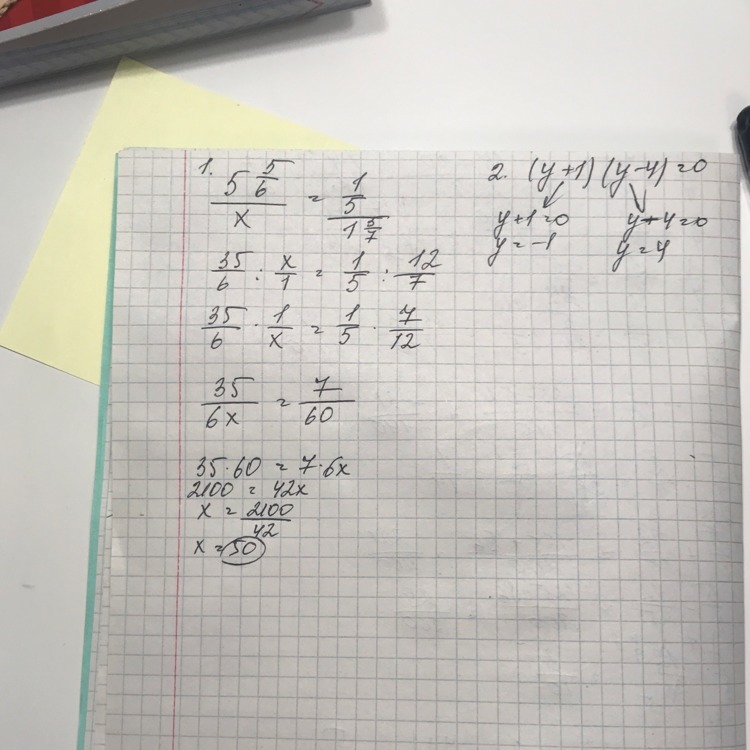 1. 5 5/6 / x = 1/5 / 1 5/7
35/6 : x/1 = 1/5 : 12/7
35/6 · 1/x = 1/5 · 7/12
35/6x = 7/60
35·60 = 7·6x
2100 = 42x
x = 2100/42
x = 50
2. (y+1)(y-4)=0
y+1=0 y-4=0
y=-1 y=4